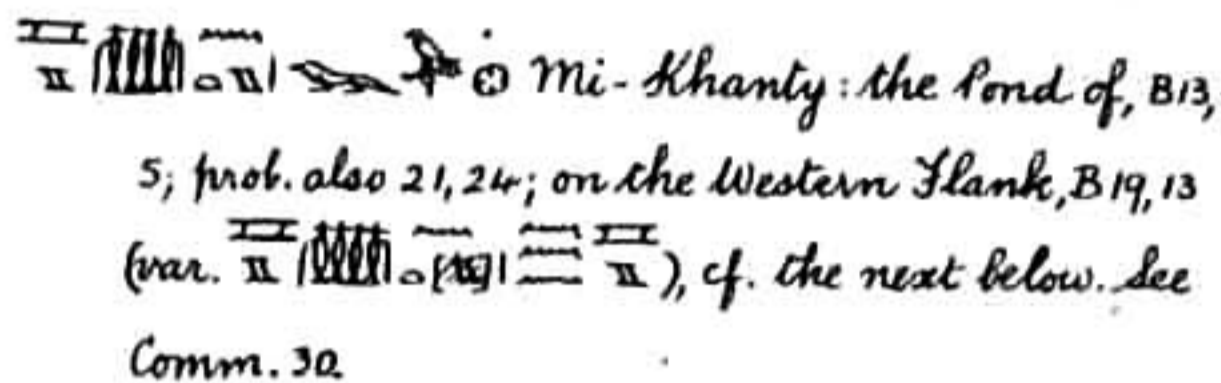 Mi-Khanty: the Pond of, B13,
5; prob. also 21, 24; on the Western Flank, B19, 13
(var. ), cf. the next below. See
Comm. 30